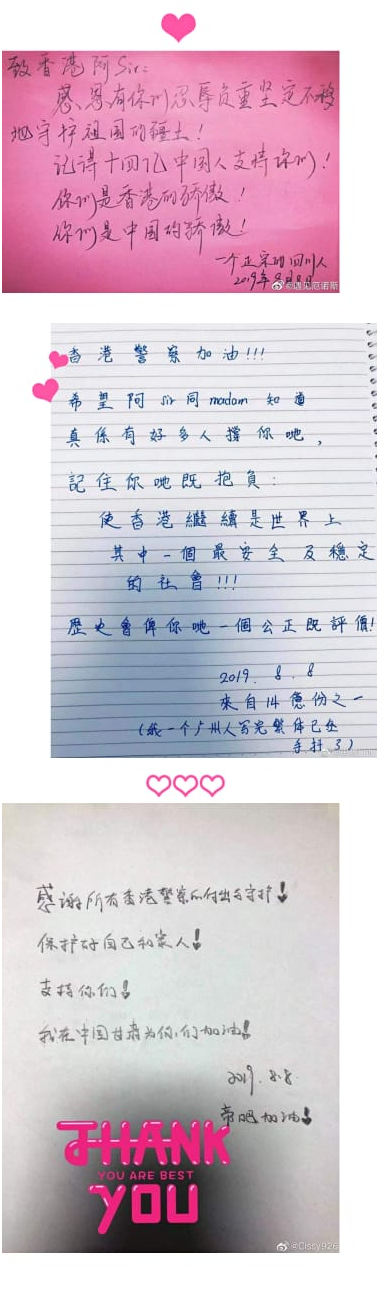 致香港阿Sir:
感恩有你们忍辱负重坚定不移
地守护祖国的疆土!
记得十四亿中国人支持你们!
你们是香港的骄傲!
你们是中国的骄傲!
一个正宗的四川人
2019年8月8日
香港警察加油!!!
希望阿sir同madam知道
真係有好多人撐你哋,
記住你哋既抱負:
使香港繼續是世界上
其中一個最安全及穩定
的社會!!!
歷史會俾你哋一個公正既評價!
2019.8.8
來自14億份之一
(我一个广州人写完繁体已经
手抖了)
感谢所有香港警察的付出与守护!
保护好自己和家人!
支持你们!
我在中国甘肃为你们加油!
2019.8.8.
帝吧加油!
THANK
YOU ARE BEST
YOU
@Cissy926